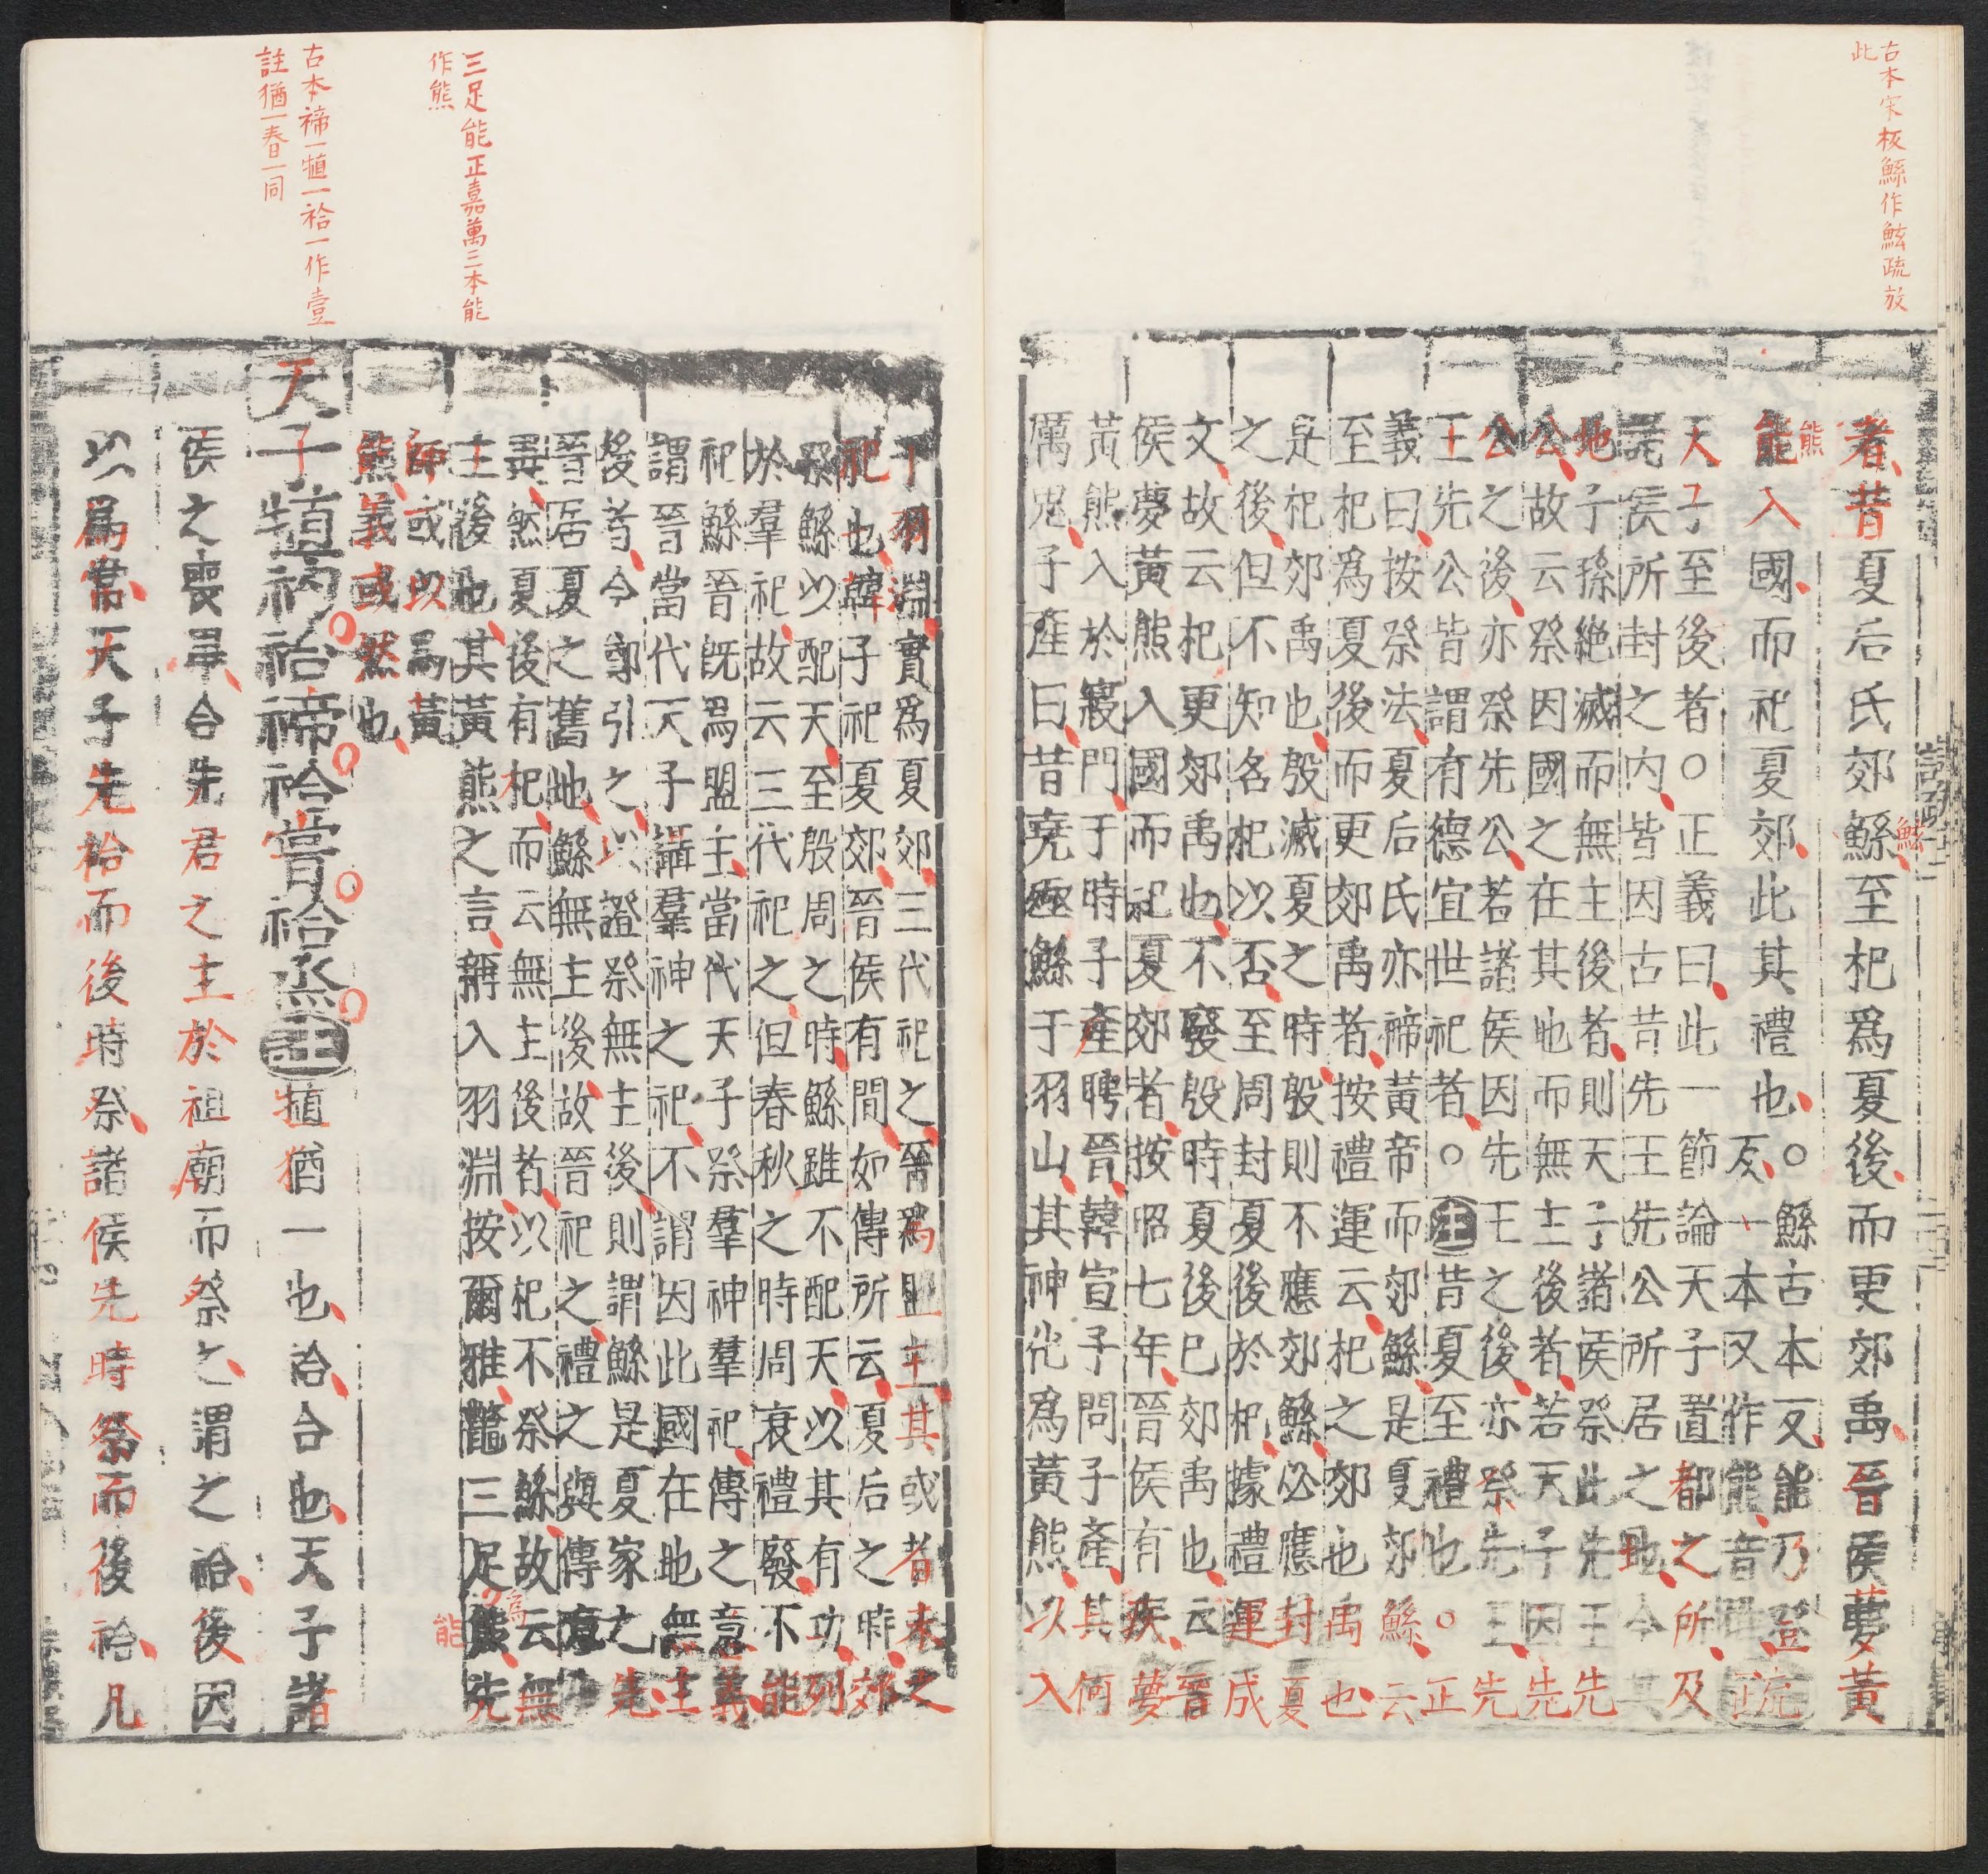 古本宋板鯀作鮌疏放
此
者昔夏后氏郊鯀至杞爲夏後而更郊禹晉侯夢黃
鮌
能入國而祀夏郊此其禮也○鯀古本反能乃登
熊
反一本又作能音 正
天子至後者○正義曰此一節論天子置都之所及
諸侯所封之內皆因古昔先王先公所居之地今其
地子孫絶滅而無主後者則天子諸侯祭此先王先
公故云祭因國之在其地而無主後者若天子因先
公之後亦祭先公若諸侯因先王之後亦祭先王先
王先公皆謂有德宜世祀者○注昔夏至禮也○正
義曰按祭法夏后氏亦禘黃帝而郊鯀是夏郊鯀云
至杞爲夏後而更郊禹者按禮運云杞之郊也禹也
是杞郊禹也殷滅夏之時殷則不應郊鯀必應封夏
之後但不知名杞以否至周封夏後於杞據禮運成
文故云杞更郊禹也不發殷時夏後已郊禹也云晉
侯夢黃熊入國而祀夏郊者按昭七年晉侯有疾夢
黃熊入於寢門于時子產聘晉韓宣子問子產其何
厲鬼子產曰昔堯殛鯀于羽山其神化爲黃熊以入
三足能正嘉萬三本能
作熊
古本禘一犆一祫一作壹
註猶一春一同
于羽淵實爲夏郊三代祀之晉爲盟主其或者未之
祀也韓子祀夏郊晉侯有間如傳所云夏后之時郊
祭鯀以配天至殷周之時鯀雖不配天以其有功列
於羣祀故云三代祀之但春秋之時周衰禮廢不能
祀鯀晉旣爲盟主當代天子祭羣神羣祀傳之意義
謂晉當代天子攝羣神之祀不謂因此國在地無主
後者今鄭引之以證祭無主後則謂鯀是夏家之先
晉居夏之舊地鯀無主後故晉祀之禮之與傳意
尋然夏後有杞而云無主後者以杞不祭鯀故云無
爲
主後也其黃熊之言解入羽淵按爾雅鼈三足熊先
能
師或以爲黃
熊義或然也
天子犆礿祫禘祫嘗祫烝注犆猶一也祫合也天子諸
侯之喪畢合先君之主於祖廟而祭之謂之祫後因
以爲常天子先祫而後時祭諸侯先時祭而後祫凡